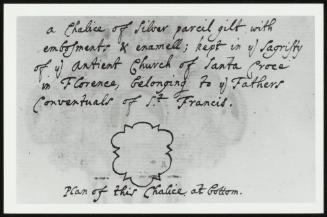 a Chalice of Silver parcil gilt with
embosments & enamell; kept in yͤ Sagristy
of yͤ Antient Church of Santa Croce
in Florence, belonging to yͤ Fathers
Conventuals of S.t Francis.
Plan of this Chalice at bottom.